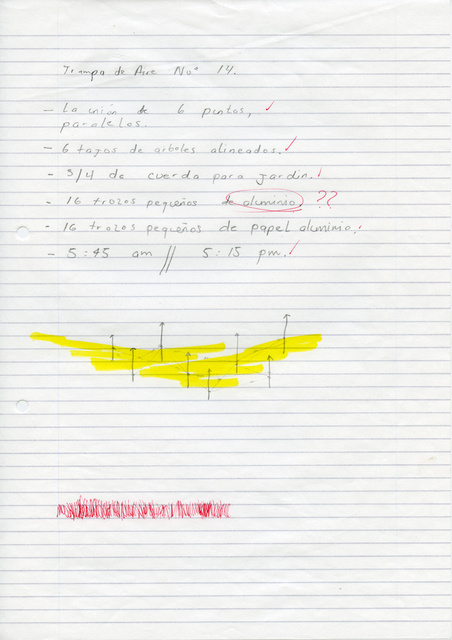 Trampa de Aire No° 14.
- La unión de 6 puntos,
paralelos.
- 6 tajos de arboles alineados.
- 3/4 de cuerda para jardin.
- 16 trozos pequeños de aluminio. ??
- 16 trozos pequeños de papel aluminio.
- 5:45 am // 5:15 pm.